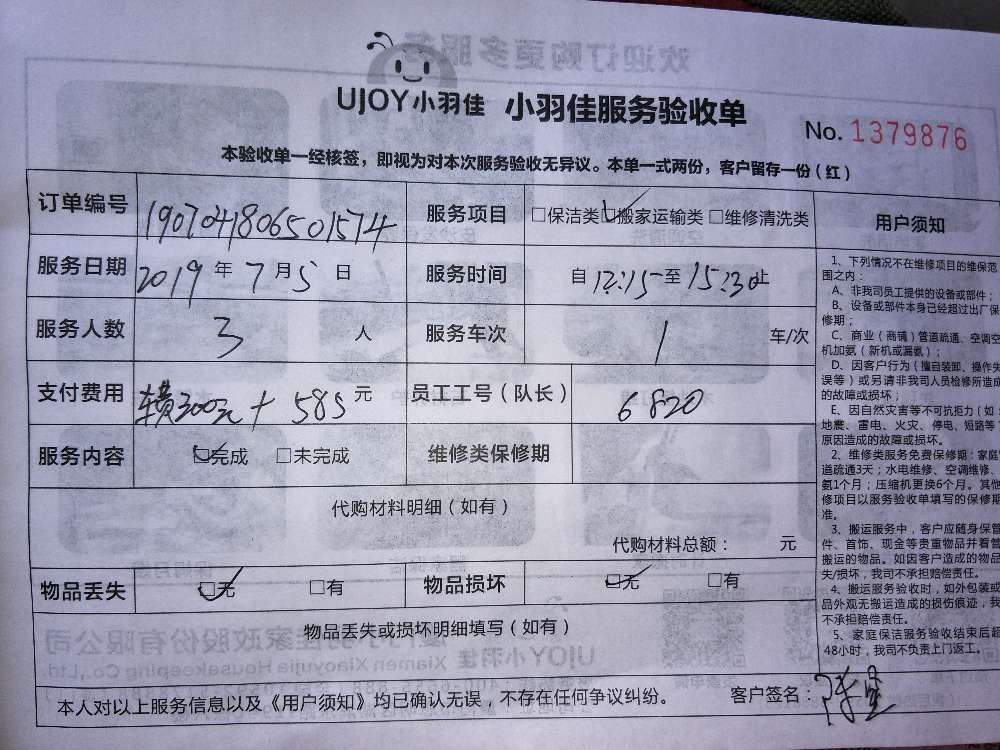 UJOY小羽佳 小羽佳服务验收单
No. 1379876
本验收单一经核签，即视为对本次服务验收无异议。本单一式两份，客户留存一份（红）
订单编号 1907041806501574 服务项目 □保洁类 □搬家运输类 □维修清洗类
服务日期 2019年7月5日 服务时间 自12:15至15:30止
服务人数 3人 服务车次 1车/次
支付费用 300元+585元 员工工号（队长） 6820
服务内容 □完成 □未完成 维修类保修期
代购材料明细（如有）
代购材料总额： 元
物品丢失 □无 □有 物品损坏 □无 □有
物品丢失或损坏明细填写（如有）
本人对以上服务信息以及《用户须知》均已确认无误，不存在任何争议纠纷。 客户签名：
用户须知
1、下列情况不在维修项目的维保范
围之内：
A、非我司员工提供的设备或部件；
B、设备或部件本身已经超过出厂保
修期；
C、商业（商铺）管道疏通、空调空
机加氨（新机或漏氨）；
D、因客户行为（擅自装卸、操作失
误等）或另请非我司人员检修所造成
的故障或损坏；
E、因自然灾害等不可抗拒力（如：
地震、雷电、火灾、停电、短路等
原因造成的故障或损坏。
2、维修类服务免费保修期：家庭
道疏通3天；水电维修、空调维修、
氨1个月；压缩机更换6个月。其他
修项目以服务验收单填写的保修期
准。
3、搬运服务中，客户应随身保管
件、首饰、现金等贵重物品并看管
搬运的物品。如因客户造成的物品
失/损坏，我司不承担赔偿责任。
4、搬运服务验收时，如外包装或
品外观无搬运造成的损伤痕迹，我
不承担赔偿责任。
5、家庭保洁服务验收结束后超
48小时，我司不负责上门返工。